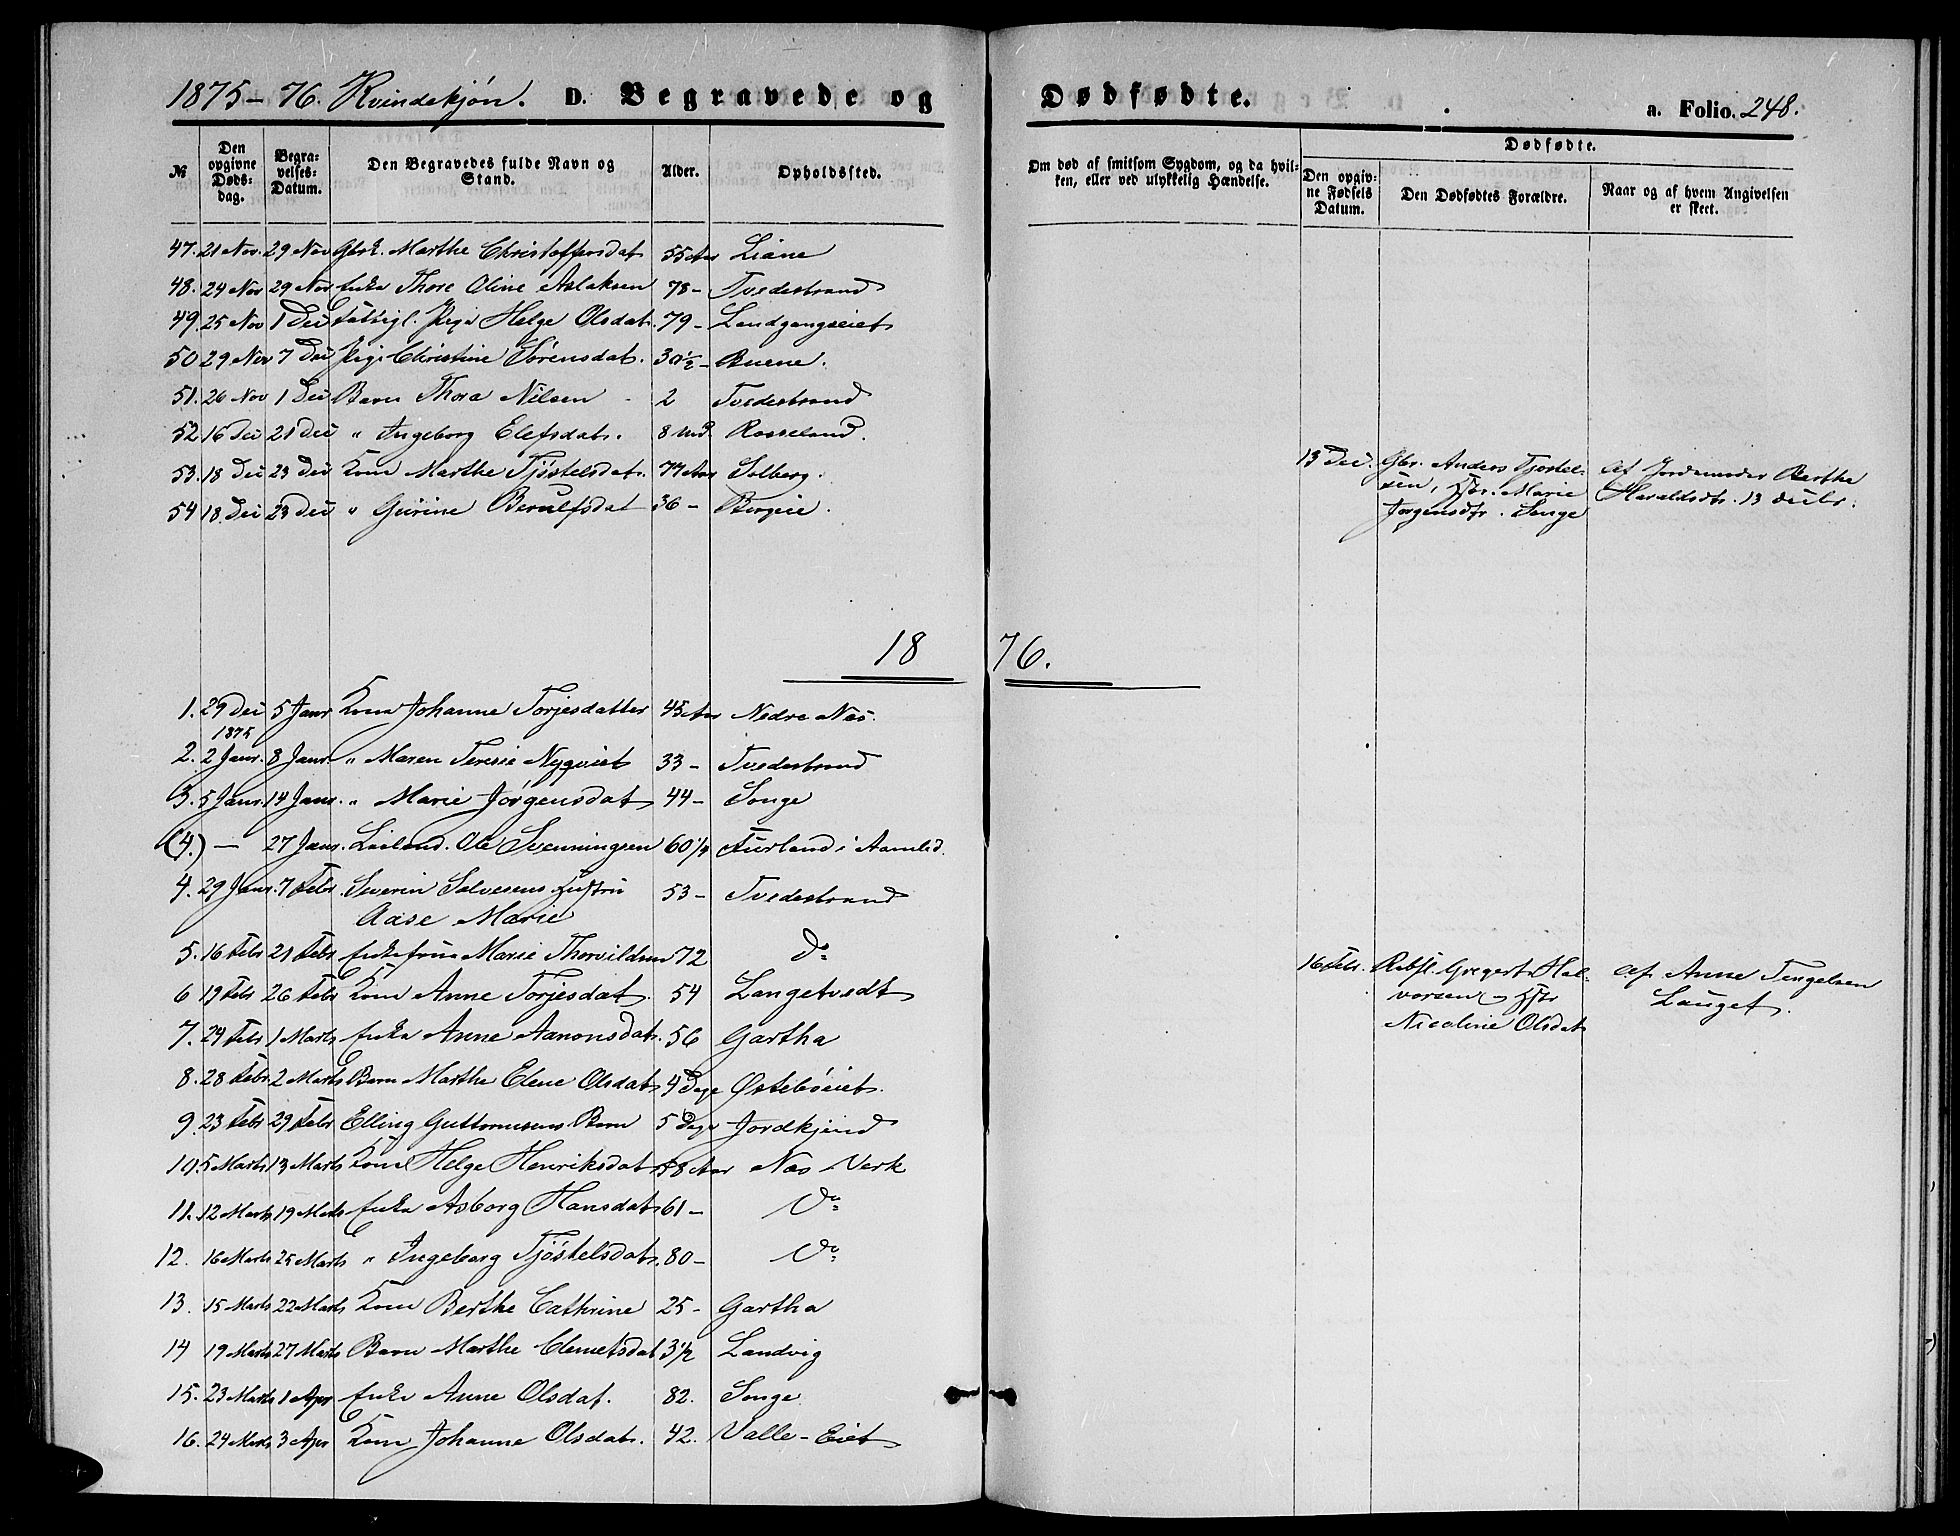 1875-76. Kvindekjøn. D. Begravede og Dødfødte. a. Folio. 248.
№ Den opgivne Dødsdag. Begravelses-Datum. Den Begravedes fulde Navn og Stand. Alder. Opholdssted. Om død af smitsom Sygdom, og da hvilken, eller ved ulykkelig Hændelse. Dødfødte. Den opgivne Fødsels Datum. Den Dødfødtes Forældre. Naar og af hvem Angivelsen er skeet.
47. 21 Nov. 29 Nov Marthe Christoffersdat 55 Aar Liane
48. 24 Nov 29 Nov Enke Thore Oline Aslaksen 78- Tvedestrand
49. 25 Nov 1 Dec Fattigl. Pige Helge Olsdat. 79- Landgangseiet
50 29 Nov 7 Dec Pige Christine Sørensdat. 30½- Buene.
51. 26 Nov 1 Dec Barn Thora Nilsen 2 Tvedestrand
52 16 Dec 21 Dec " Ingeborg Elefsdat. 8 Md. Rosseland.
53. 18 Dec 23 Dec Kone Marthe Tjöstelsdat. 77 Aar Solberg.
54 18 Dec 23 Dec " Gurine Berulfsdat 36- Borgeie.
13 Dec. Gbr. Anders Tjostel-
sen, Hstr. Marie
Jorgensdtr. Songe
af Jordemoder Berthe
Haraldsdtr. 13 Decbr.
1876.
1. 29 Dec 1875 5 Janr Kone Johanne Torjesdatter 45 Aar Nedre Næs.
2. 2 Janr. 8 Janr. " Maren Teresie Nyqvist 33- Tvedestrand
3. 5 Janr. 14 Janr. " Marie Jörgensdat 44- Songe
(4.) - 27 Janr. Ole Svenningsen 60½ i Aamlid.
4. 29 Janr. 7 Febr. Severin Salvesens Hustru 53- Tvedestrand
Aase Marie
5. 16 Febr 21 Febr Enkefrue Marie Thorvildsen 72 Do
6 19 Febr 26 Febr Kone Anne Torjesdat. 54 Langetvedt
7. 24 Febr 1 Marts Enke Anne Aanonsdat. 56 Gartha
8. 28 Febr 2 Marts Barn Marthe Elene Olsdat 4 Dage Østebøeiet.
9. 23 Febr 29 Febr Elling Guttormsens Barn 5 Dage Jordkjend
10. 5 Marts 13 Marts Kone Helge Henriksdat 58 Aar Næs Verk
11. 12 Marts 19 Marts Enke Asborg Hansdat 61- Do
12. 16 Marts 25 Marts " Ingeborg Tjöstelsdat. 80- Do
13. 15 Marts 22 Marts Kone Berthe Cathrine 25- Gartha
14 19 Marts 27 Marts Barn Marthe Clemetsdat 3½ Landvig
15. 23 Marts 1 Apr Enke Anne Olsdat. 82. Songe
16. 24 Marts 3 Apr Kone Johanne Olsdat. 42. Valle-Eiet
16 Febr. Rebsl. Gregert Hal-
vorsen & Hstr
Nicoline Olsdat
af Anne Tengelsen
Lauget.